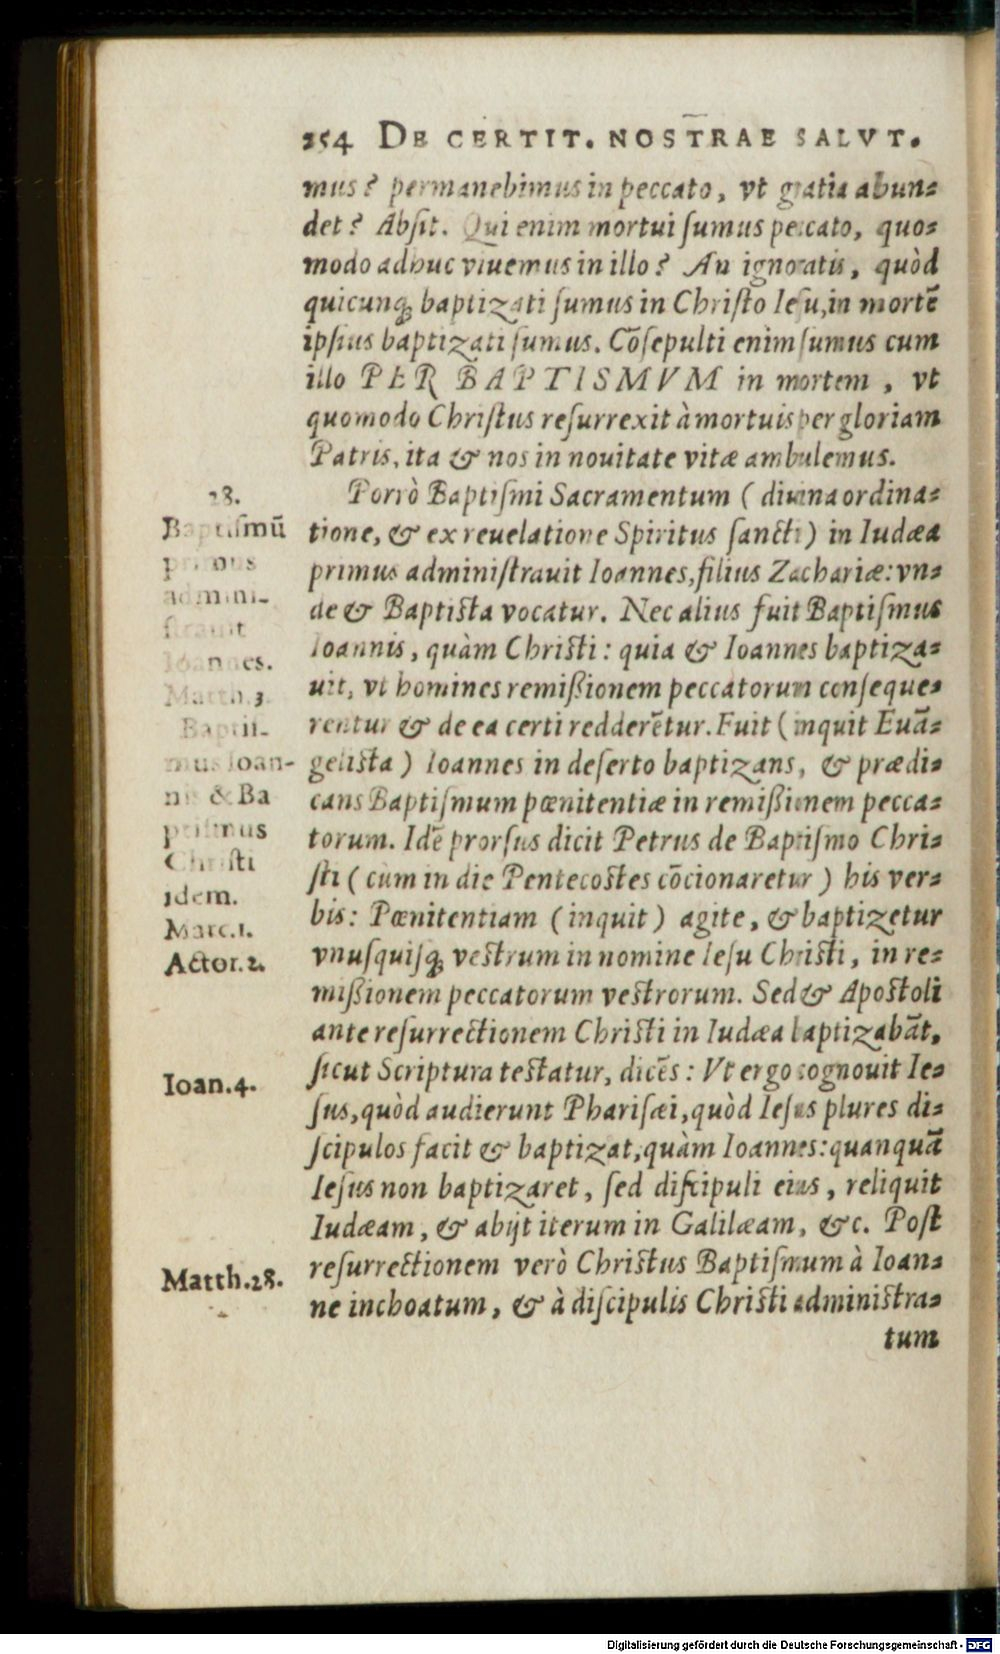 254 DE CERTIT. NOSTRAE SALVT.
mus? permanebimus in peccato, vt gratia abun-
det? Absit. Qui enim mortui sumus peccato, quo-
modo adhuc viuemus in illo? An ignoratis, quòd
quicunq; baptizati sumus in Christo Iesu, in mortē
ipsius baptizati sumus. Cōsepulti enim sumus cum
illo PER BAPTISMVM in mortem, vt
quomodo Christus resurrexit à mortuis per gloriam
Patris, ita & nos in nouitate vitæ ambulemus.
Porrò Baptismi Sacramentum (diuina ordina-
tione, & ex reuelatione Spiritus sancti) in Iudæa
primus administrauit Ioannes, filius Zachariæ: vn-
de & Baptista vocatur. Nec alius fuit Baptismus
Ioannis, quàm Christi: quia & Ioannes baptiza-
uit, vt homines remißionem peccatorum conseque-
rentur & de ea certi redderētur. Fuit (inquit Euā-
gelista) Ioannes in deserto baptizans, & prædi-
cans Baptismum pœnitentiæ in remißionem pecca-
torum. Idē prorsus dicit Petrus de Baptismo Chri-
sti (cùm in die Pentecostes cōcionaretur) his ver-
bis: Pœnitentiam (inquit) agite, & baptizetur
vnusquisq; vestrum in nomine Iesu Christi, in re-
mißionem peccatorum vestrorum. Sed & Apostoli
ante resurrectionem Christi in Iudæa baptizabāt,
sicut Scriptura testatur, dicēs: Vt ergo cognouit Ie-
sus, quòd audierunt Pharisæi, quòd Iesus plures di-
scipulos facit & baptizat, quàm Ioannes: quanquā
Iesus non baptizaret, sed discipuli eius, reliquit
Iudæam, & abijt iterum in Galilæam, &c. Post
resurrectionem verò Christus Baptismum à Ioan-
ne inchoatum, & à discipulis Christi administra-
tum
28.
Baptismū
primus
admini-
strauit
Ioannes.
Matth.3.
Baptis-
mus Ioan-
nis & Ba
ptismus
Christi
idem.
Marc.1.
Actor.2.
Ioan.4.
Matth.28.
Digitalisierung gefördert durch die Deutsche Forschungsgemeinschaft - DFG